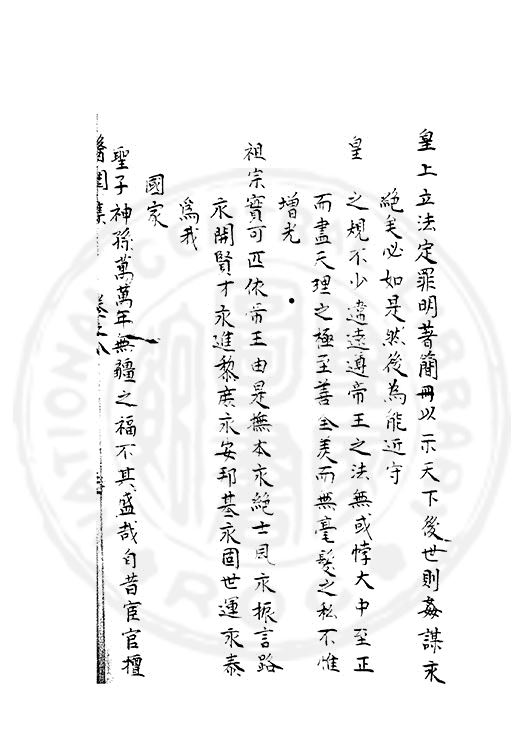 皇上立法定罪明著簡冊以示天下後世則姦謀永
絕矣必如是然後為能近守
皇
之規不少違遠遵帝王之法無或悖大中至正
而盡天理之極至善全美而無毫髮之私不惟
增光
祖宗寶可匹休帝王由是撫本永絕士風永振言路
永開賢才永進黎庶永安邦基永固世運永泰
爲我
國家
聖子神孫萬萬年無疆之福不其盛哉自昔宦官擅
醫閭集 卷之八